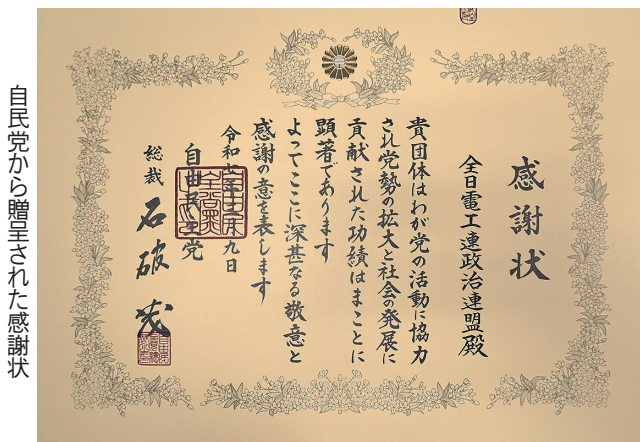 感謝状
全日電工連政治連盟殿
貴団体はわが党の活動に協力
され党勢の拡大と社会の発展に
貢献された功績はまことに
顕著であります
よってここに深甚なる敬意と
感謝の意を表します
令和七年三月九日
自由民主党
総裁 石破茂
自民党から贈呈された感謝状